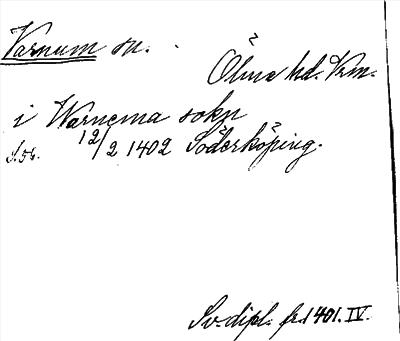 Varnum sn.
Ölme hd. Vrm.
i Warnema sokn
12/2 1402 Söderköping.
S. 56.
Sv. dipl. fr. 1401. IV.